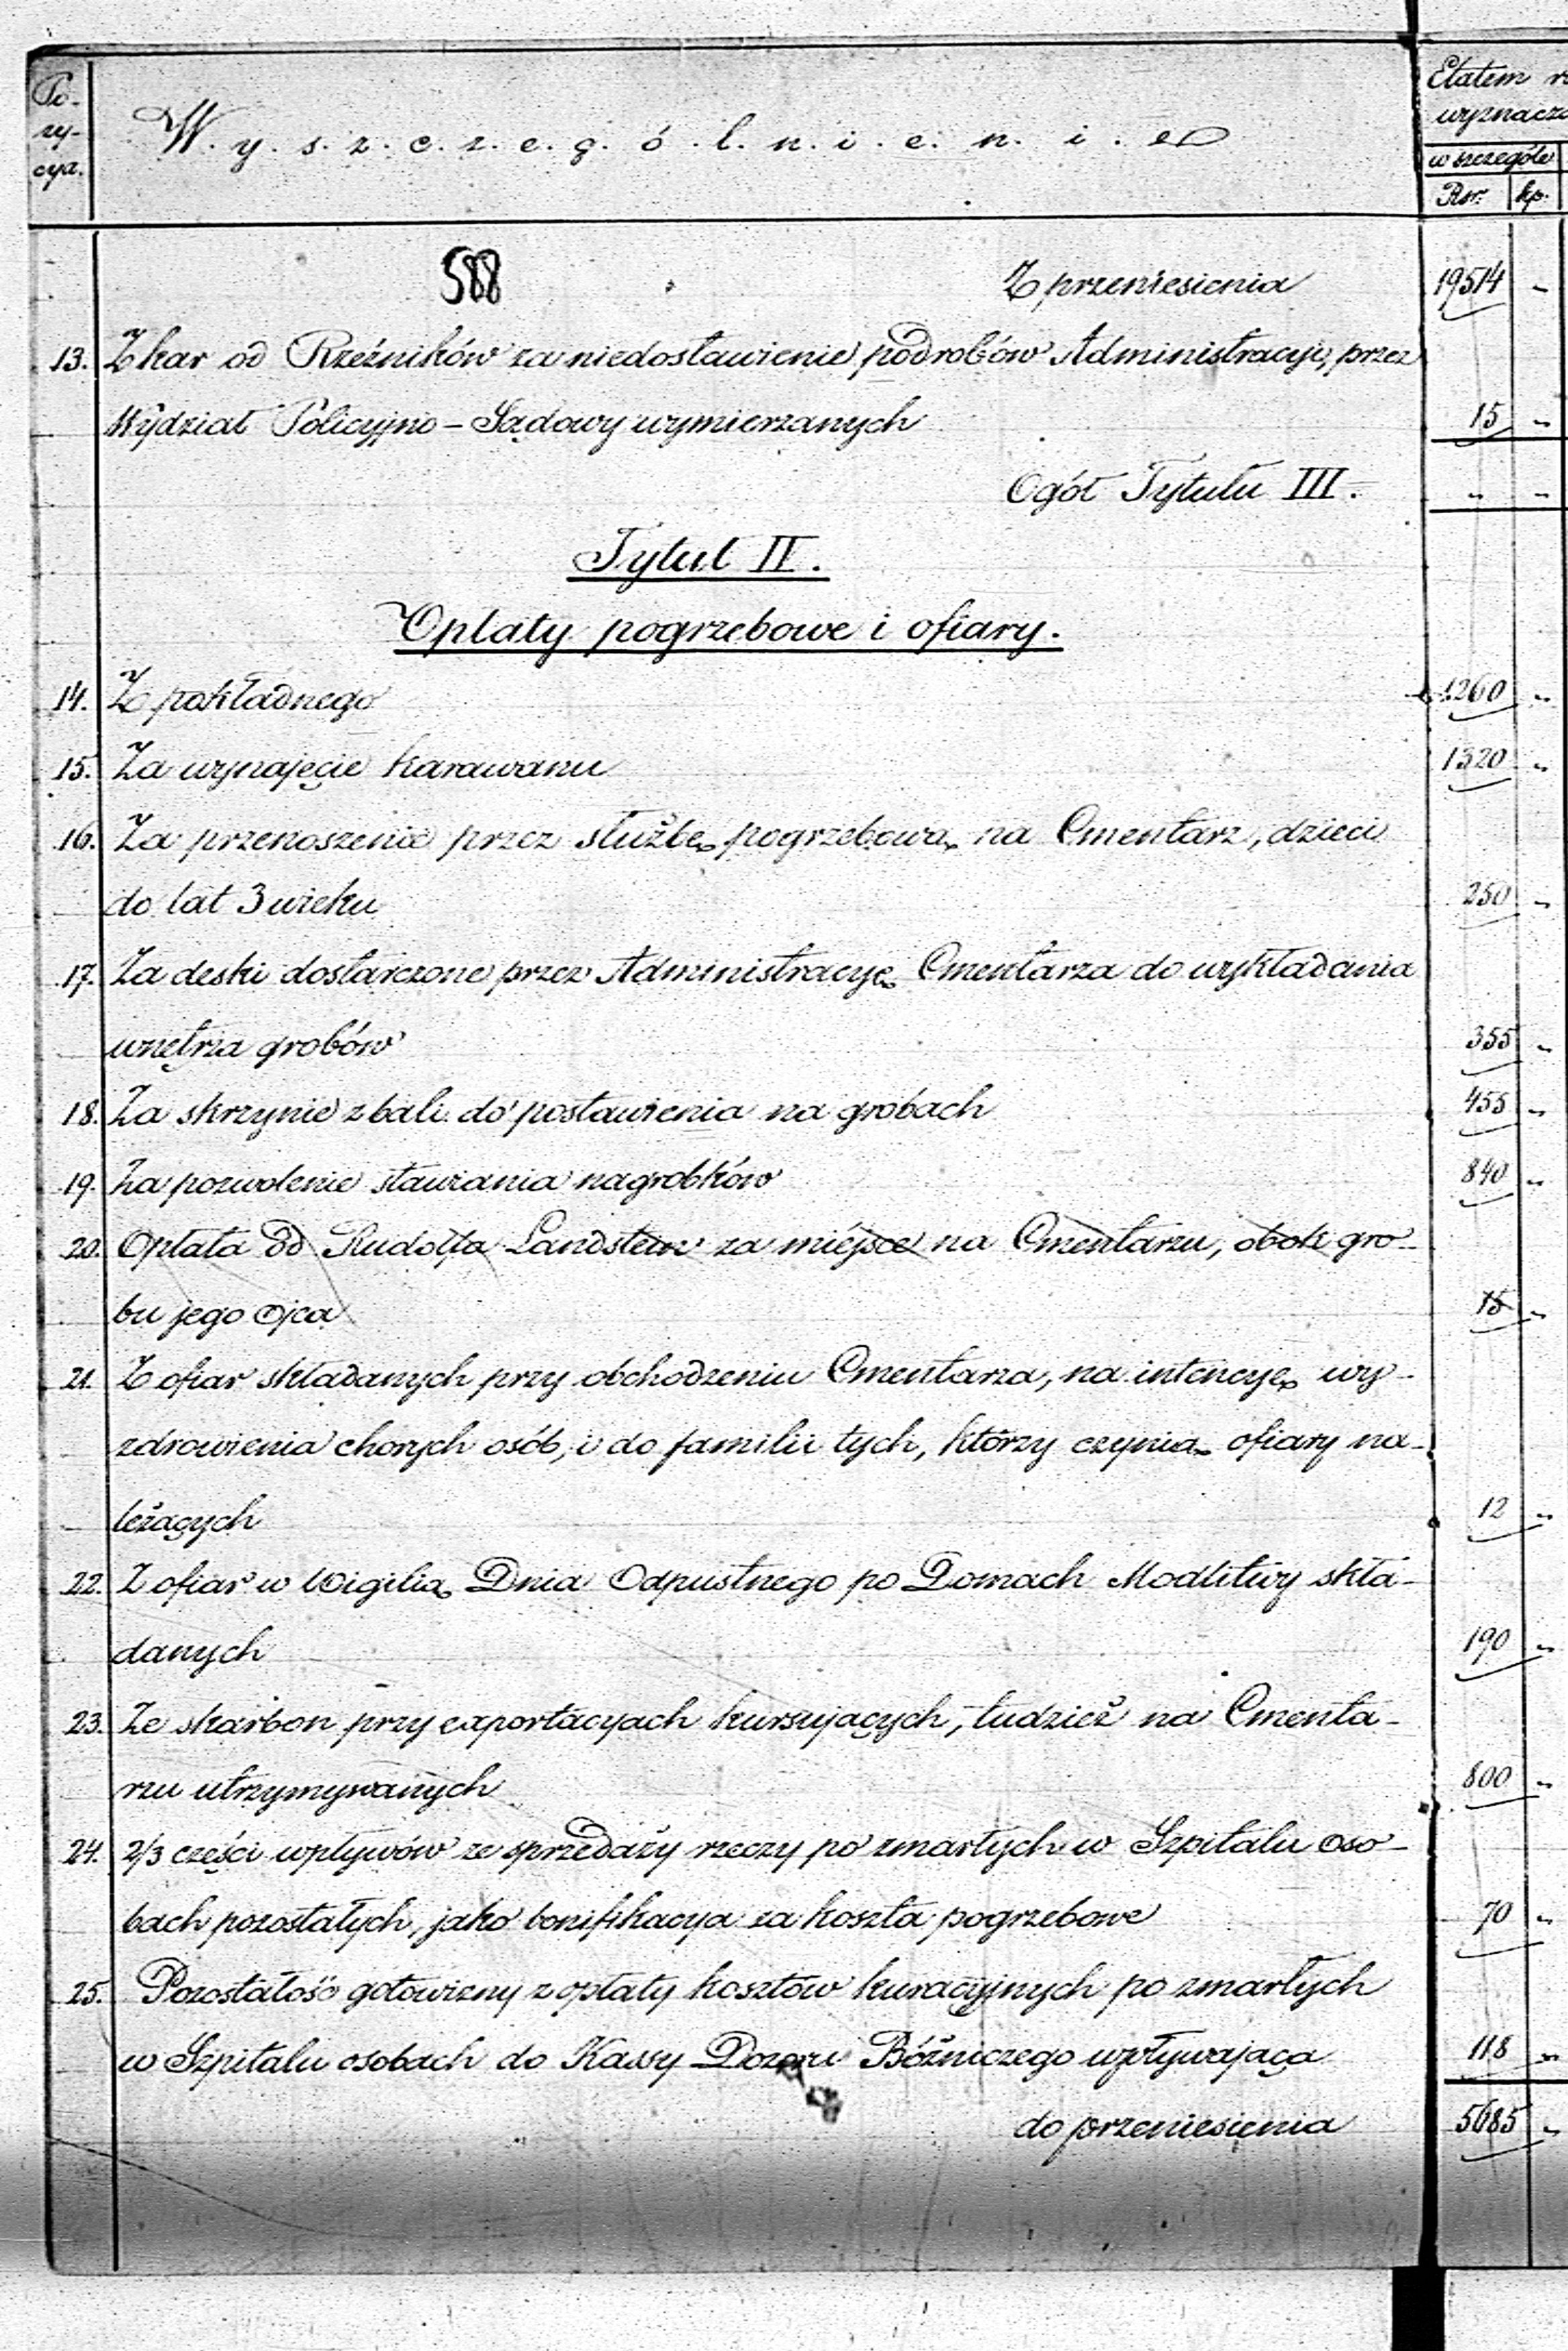 Po-
zy-
cya.
W.y.s.z.c.z.e.g.ó.l.n.i.e.n.i.e
Etatem
wyznacz
w szczególe
Rsr. kp.
588
Z przeniesienia 19514 "
13. Z kar od Rzeźników za niedostawienie podrobów Administracyi, przez
Wydział Policyjno-Sądowy wymierzanych 15 "
Ogół Tytułu III. " "
Tytuł IV.
Opłaty pogrzebowe i ofiary.
14. Z pokładnego 1260 "
15. Za wynajęcie karawanu 1320 "
16. Za przenoszenie przez służbę pogrzebową na Cmentarz, dzieci
do lat 3 wieku 250 "
17. Za deski dostarczone przez Administracyę Cmentarza do wykładania
wnętrza grobów 355 "
18. Za skrzynie z bali do postawienia na grobach 455 "
19. Za pozwolenie stawiania nagrobków 840 "
20. Opłata od Rudolfa Landstein za miéjsce na Cmentarzu, obok gro-
bu jego ojca 15 "
21. Z ofiar składanych przy obchodzeniu Cmentarza, na intencyę wy-
zdrowienia chorych osób, i do familii tych, którzy czynią ofiary na-
leżących 12 "
22. Z ofiar w Wigilią Dnia Odpustnego po Domach Modlitwy skła-
danych 190 "
23. Ze skarbon przy exportacyach kursujących, tudzież na Cmenta-
rzu utrzymywanych 800 "
24. 2/3 części wpływów ze sprzedaży rzeczy po zmarłych w Szpitalu oso-
bach pozostałych, jako bonifikacya za koszta pogrzebowe 70 "
25. Pozostałość gotowizny z opłaty kosztów kuracyjnych po zmarłych
w Szpitalu osobach do Kassy Dozoru Bóżniczego wpływająca 118 "
do przeniesienia 5685 "